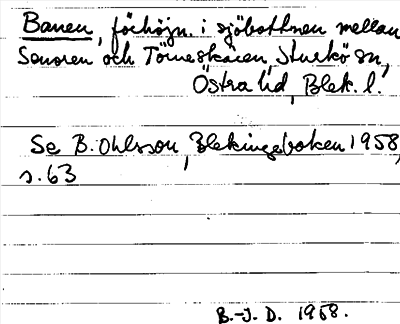 Banen, förhöjn. i sjöbottnen mellan
Senoren och Törneskären, Sturkö sn,
Östra hd, Blek. l.
Se B. Ohlsson, Blekingeboken 1958,
s. 63
B.-J. D. 1958.